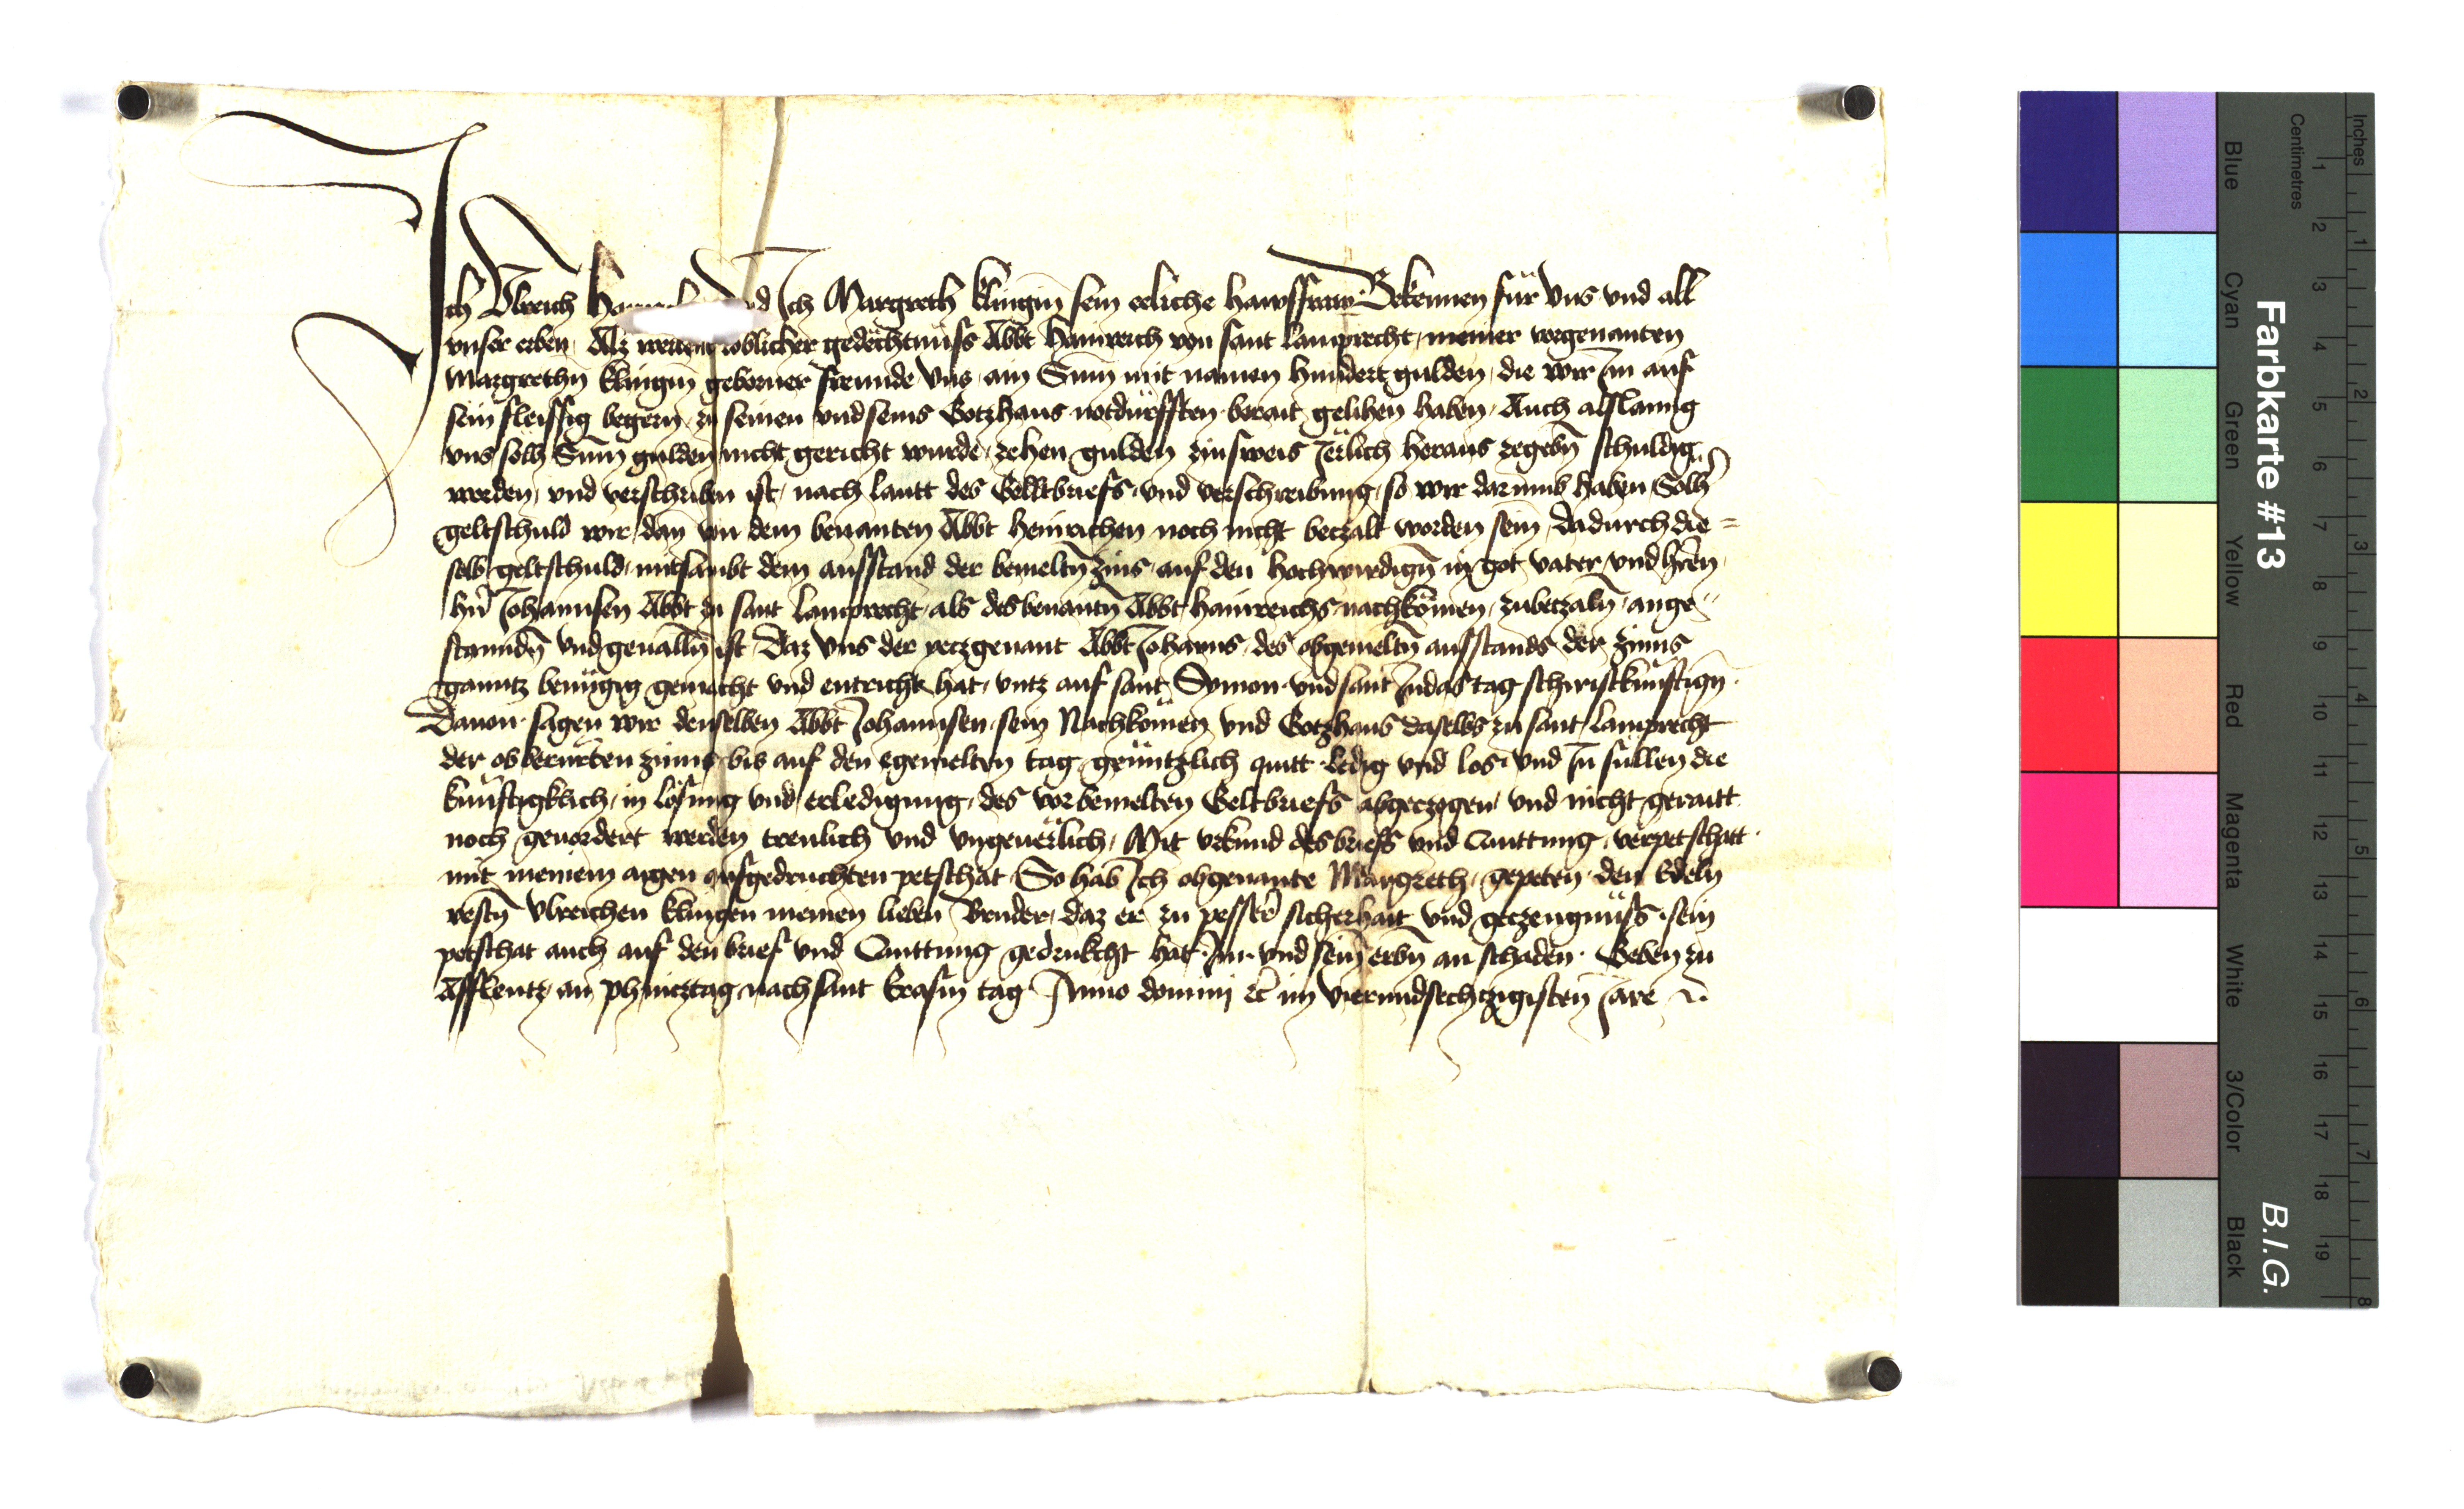 Ich Vlreich vnd Ich Margreth Klingin̄ sein eeliche hawsffraw Bekennen für vns vnd all
vnser erben Alz weilent löblicher gedёchtnüss Abbt Hainreich von sant Lamprecht meiner vorgenanten
Margrethn̄ Klingin̄ geborner freunde vns ain Sum̄ mit namen hundert gulden die wir Im auf
sein fleissig begern zu seinen vnd seins Gotzhaus notdürfften berait gelihen haben Auch alslanng
vns solh Sum̄ gulden nicht gericht wurde zehen gulden zinsweis Jёrlich heraus zegebn̄ schuldig
worden vnd verschriben ist nach lautt des Geltbriefs vnd verschreibung so wir darumb haben Solh
geltschuld wir dan̄ von dem benanten Abbt Heinrichen noch nicht betzalt worden sein dadurch die=
selb geltschuld mitsambt dem ausstand der bemeltn̄ zins auf den hochwirdign̄ in got vater vnd hrēn
hn̄ Johannsen Abbt zu sant Lamprecht als des benantn̄ Abbt Hainreichs nachkömen zubetzaln̄ ange=
stanndn̄ vnd geualln̄ ist Daz vns der yetzgenant Abbt Johanns des obgemeltn̄ ausstands der zinns
ganntz benügig gemacht vnd entricht hat vntz auf sant Symon vnd sant Judas tag schiristkünftign̄
Dauon sagen wir denselben Abbt Johannsen sein Nachkömen vnd Gotzhaus daselbs zu sant Lamprecht
der obberürten zinns bis auf den egemelten tag genntzlich quitt ledig vnd los vnd In süllen die
künftigklich in lösung vnd erledigung des vorbemelten Geltbriefs abgeczogen vnd nicht geraitt
noch geuordert werden treulich vnd vngeuёrlich Mit vrkund des briefs vnd Quittung verpetschatt
mit meinem aigen aufgedruckten petschat So hab Ich obgenante Margreth gepeten den Edeln
vestn̄ Vlreichen Klingen meinen lieben Bruder daz er zu pesser sicherhait vnd geczeugnüss sein
petschat auch auf den brief vnd Quittung gedrukcht hat Im vnd sein̄ erbn̄ an schaden Geben zu
Afflentz an phincztag nach sant Erasm tag Anno domini etc̄ im vierundsechtzigisten Jare